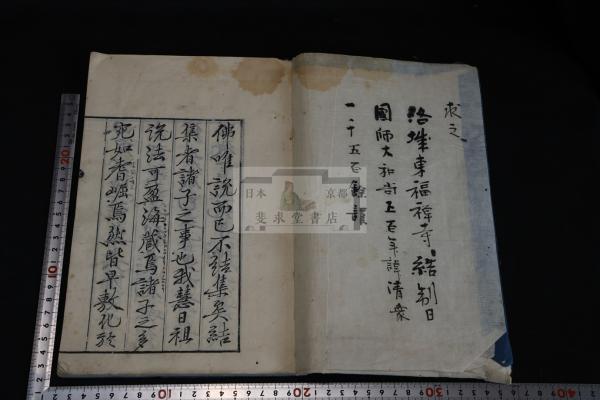 求之
洛陽東福禅寺、結制日
國師大和尚五百年諱清衆
一千五百
佛唯說而已不結集矣結
集者諸子之事也我慧日祖
説法可盈海藏焉諸子之多
宛如耆崛焉然皆早敷化於
日本 京都
斐求堂書店